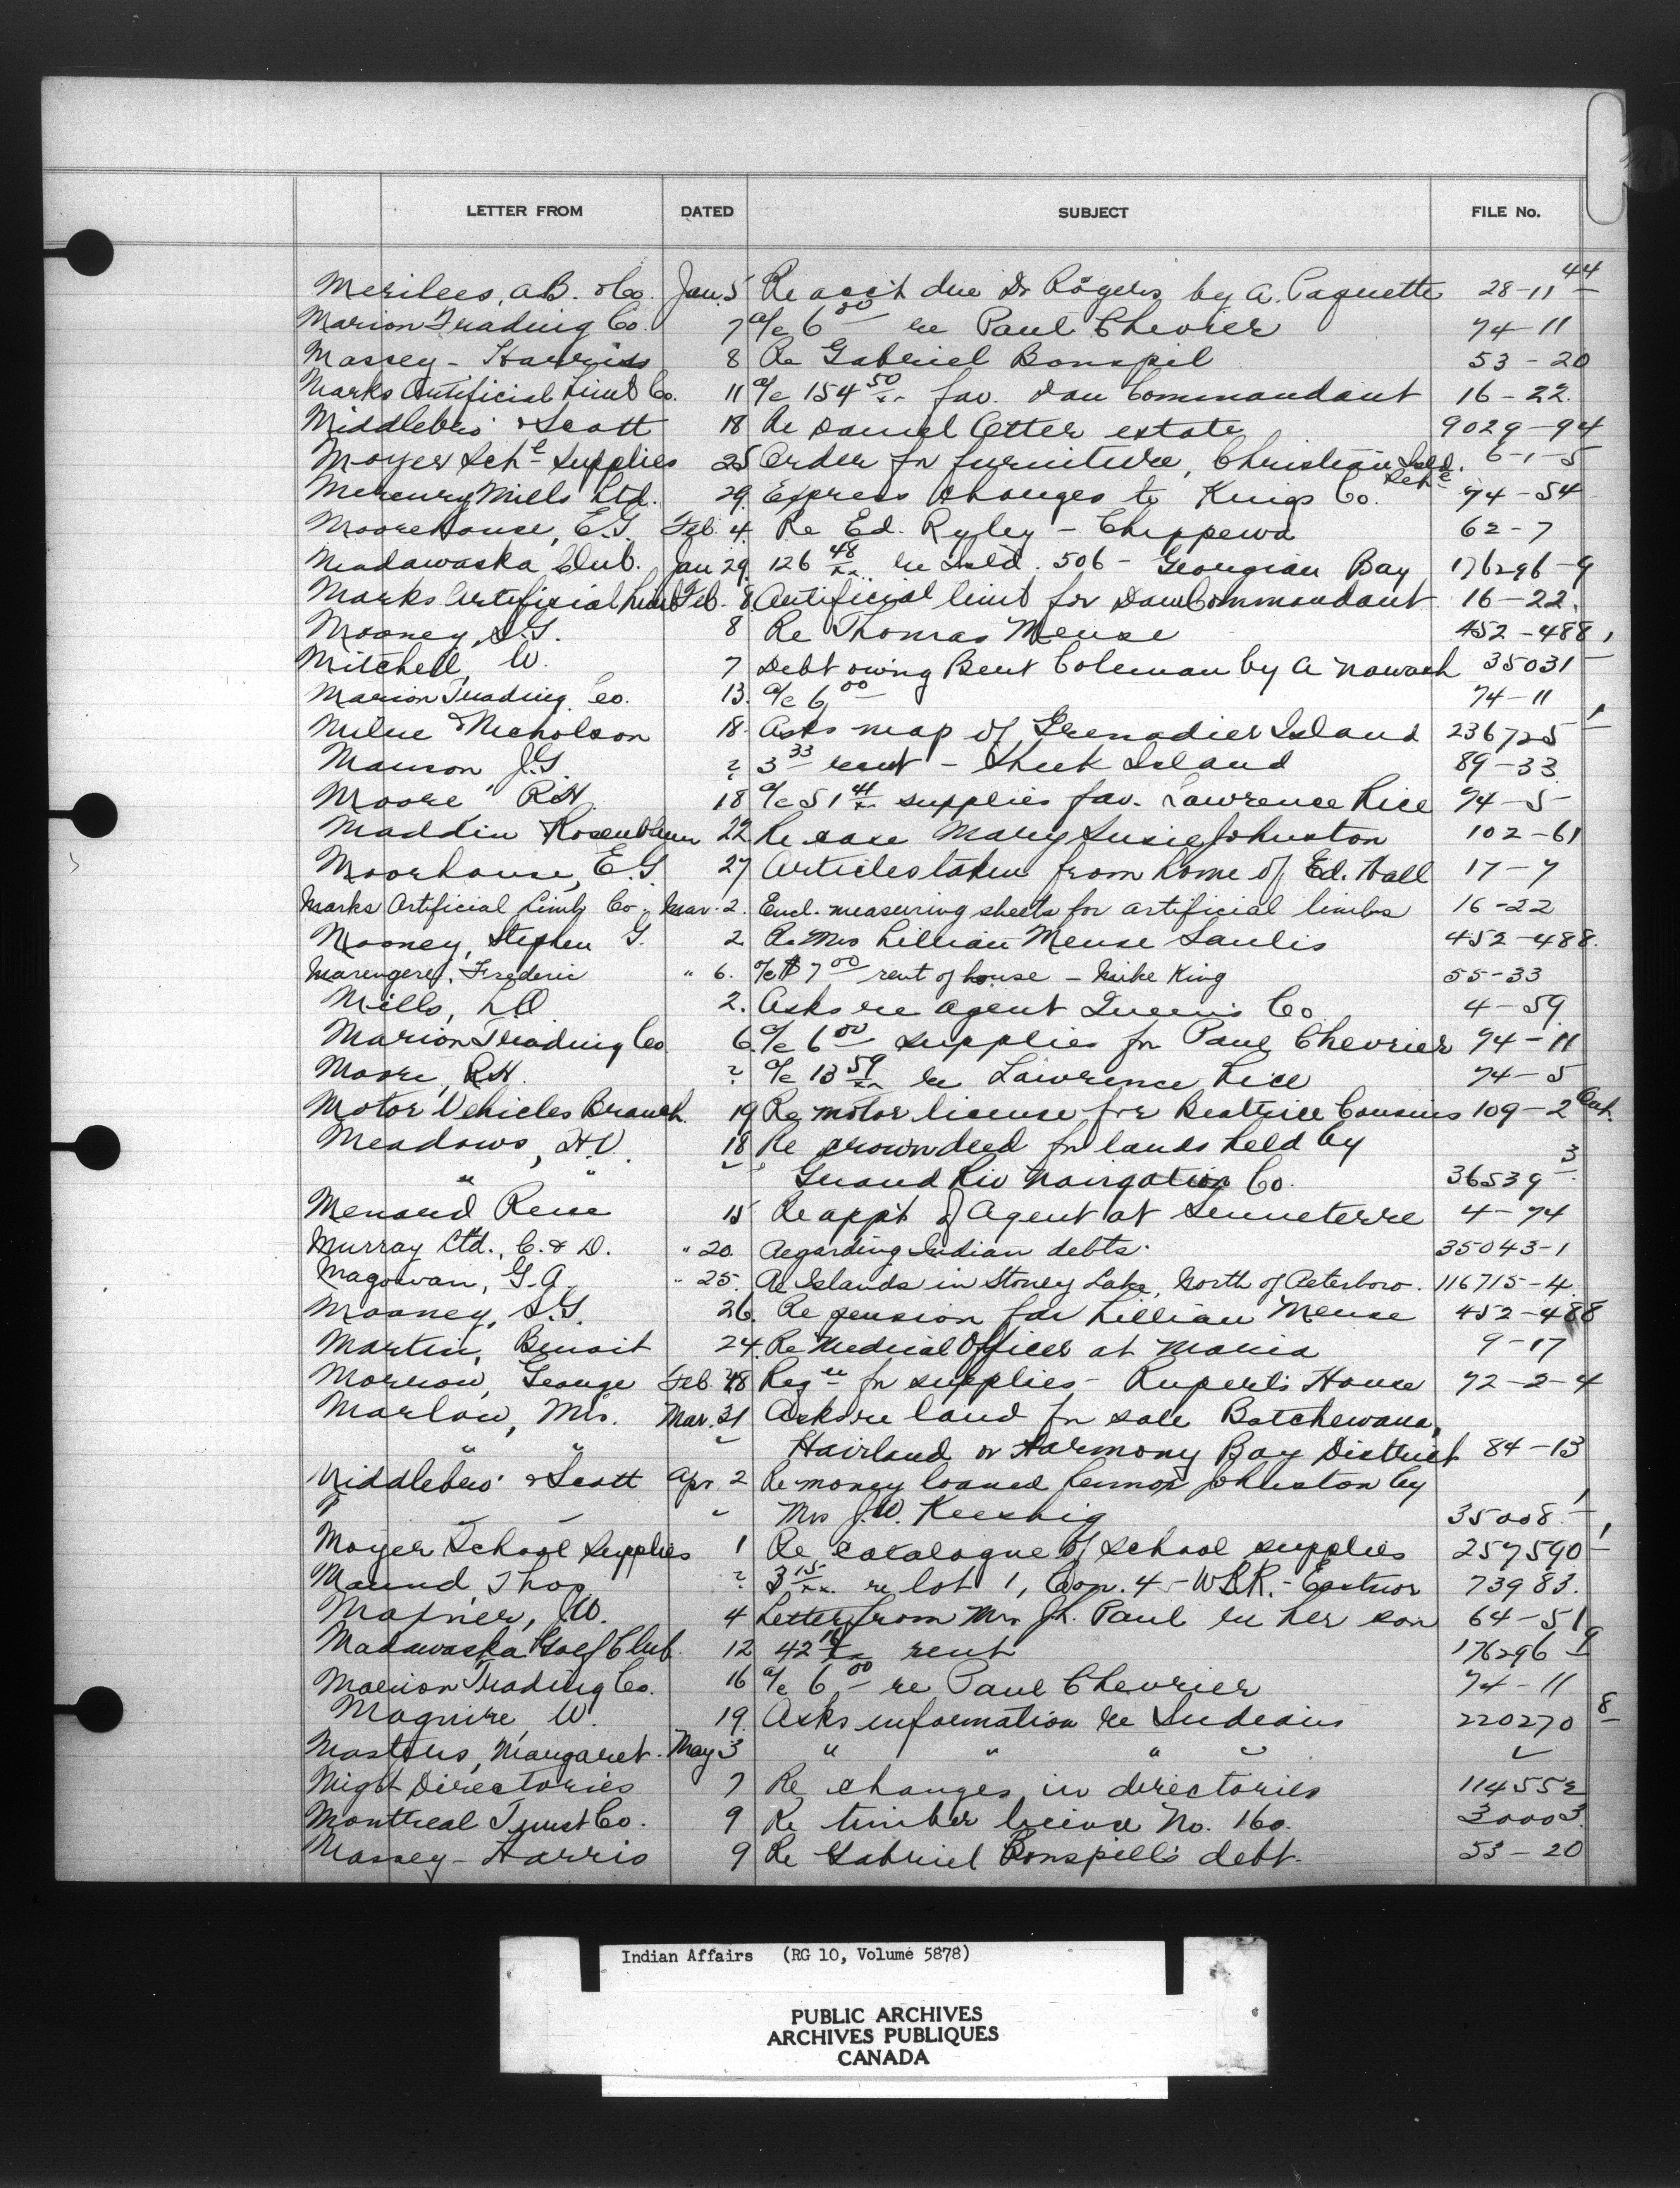 LETTER FROM DATED SUBJECT FILE No.
Merilees, A.B. & Co. Jan. 5 Re acc't due Dr Rogers by A. Paquette 28-11 44
Marion Trading Co. 7 a/c 6 00 re Paul Chevrier 74-11
Massey-Harriss 8 Re Gabriel Bonspil 53-20
Marks Artificial Limb Co. 11 a/c 154 50/xx fav. Dan Commandant 16-22.
Middlebro' & Scott 18 Re Daniel Otter estate 9029-94
Moyer Sch. Supplies 25 Order for furniture, Christian Isld. 6-1-5
Mercury Mills Ltd. 29. Express charges to Kings Co. 74-54
Moorehouse, E.G. Feb. 4. Re Ed. Ryley - Chippewa 62-7
Madawaska Club. Jan 29. 126 48/xx re Isld. 506 - Georgian Bay 176296-9
Marks Artificial Limb Feb. 8. Artificial limb for Dan Commandant 16-22.
Mooney, S.G. 8 Re Thomas Meuse 452-488
Mitchell, W. 7 Debt owing Bent Coleman by A Nawash 35031
Marion Trading Co. 13. a/c 6 00 74-11
Milne & Nicholson 18. Asks map of Grenadier Island 236725
Manson J.G. ? 3 33 rent - Sheek Island 89-33
Moore R.H. 18 a/c 51 41/xx supplies fav. Lawrence Rice 74-5
Maddin Rosenblum 22. Re case Mary Susie Johnston 102-61
Moorhouse, E.G. 27 Articles taken from home of Ed. Hall 17-7
Marks Artificial Limb Co. Mar. 2. Encl. measuring sheets for artificial limbs 16-22
Mooney, Stephen G. 2 Re Mrs Lillian Meuse Saulis 452-488.
Marengere, Frederic " 6. a/c $7 00 rent of house - Mike King 55-33
Mills, L.O. 2. Asks re agent Queens Co 4-59
Marion Trading Co 6. a/c 6 00 supplies for Paul Chevrier 74-11
Moore, R.H. ? a/c 13 59/xx re Lawrence Rice 74-5
Motor Vehicles Branch 19 Re motor license for Beatrice Cousins 109-2
Meadows, H.V. 18 Re crown deed for lands held by
" " Grand Riv Navigation Co. 36539 3
Menard Rene 15 Re app't of Agent at Senneterre 4-74
Murray Ltd., C. & D. " 20. Regarding Indian debts. 35043-1
Magowan, G.A. " 25. Re Islands in Stoney Lake, North of Peterboro. 116715-4
Mooney, S.G. 26. Re pension for Lillian Meuse 452-488
Martin, Benoit 24. Re Medical Officer at Maria 9-17
Morrow, George Feb. 28 Reqn for supplies - Rupert's House 72-2-4
Marlow, Mrs. Mar. 31 Asks re land for sale Batchewana,
" " " Hairland or Harmony Bay District 84-13
Middlebro' & Scott Apr. 2 Re money loaned Lennox Johnston by
" Mrs J.W. Keeshig 35008
Moyer School Supplies 1 Re catalogue of school supplies 257590
Maund Thos ? 3 15/xx re lot 1, Con. 4 - W.B.R. - Eastnor 73983.
, W. 4 Letter from Mrs Paul re her son 64-51
Madawaska Golf Club 12 42 rent 176296 9
Marion Trading Co. 16 a/c 6 00 re Paul Chevrier 74-11
Maguire, W. 19. Asks information re Indians 220270 8
Masters, Margaret. May 3 " " " "
Might Directories 7 Re changes in directories 114552
Montreal Trust Co. 9 Re timber license No. 160. 30003.
Massey-Harris 9 Re Gabriel Bonspill's debt. 53-20
Indian Affairs (RG 10, Volume 5878)
PUBLIC ARCHIVES
ARCHIVES PUBLIQUES
CANADA